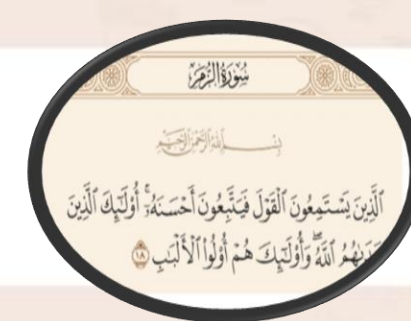 سُورَةُ الزُّمَرِ
بِسْمِ اللَّهِ الرَّحْمَٰنِ الرَّحِيمِ
ٱلَّذِينَ يَسْتَمِعُونَ ٱلْقَوْلَ فَيَتَّبِعُونَ أَحْسَنَهُۥٓۚ أُو۟لَٰٓئِكَ ٱلَّذِينَ
هَدَىٰهُمُ ٱللَّهُۖ وَأُو۟لَٰٓئِكَ هُمْ أُو۟لُوا۟ ٱلْأَلْبَٰبِ ١٨